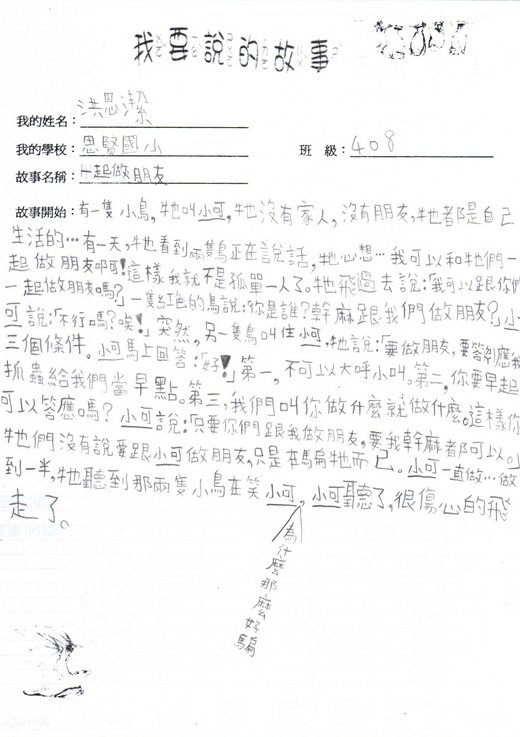 我要說的故事
我的姓名：洪思潔
我的學校：思賢國小 班 級：408
故事名稱：一起做朋友
故事開始：有一隻小鳥，牠叫小可，牠沒有家人，沒有朋友，牠都是自己
生活的…有一天，牠看到兩隻鳥正在說話，牠心想…我可以和牠們一
起做朋友啊！這樣我就不是孤單一人了。牠飛過去說：「我可以跟你們
一起做朋友嗎？」一隻紅色的鳥說：「你是誰？幹麻跟我們做朋友？」小
可說：「不行嗎？唉！」突然，另一隻鳥叫住小可，牠說：「要做朋友，要答應我
三個條件。小可馬上回答：「好！」第一，不可以大呼小叫。第二，你要早起
抓蟲給我們當早點。第三，我們叫你做什麼就做什麼。這樣你
可以答應嗎？小可說：「只要你們跟我做朋友，要我幹麻都可以。」
牠們沒有說要跟小可做朋友，只是在騙牠而已。小可一直做…做
到一半，牠聽到那兩隻小鳥在笑小可，小可聽了，很傷心的飛
走了。
為什麼那麼好騙